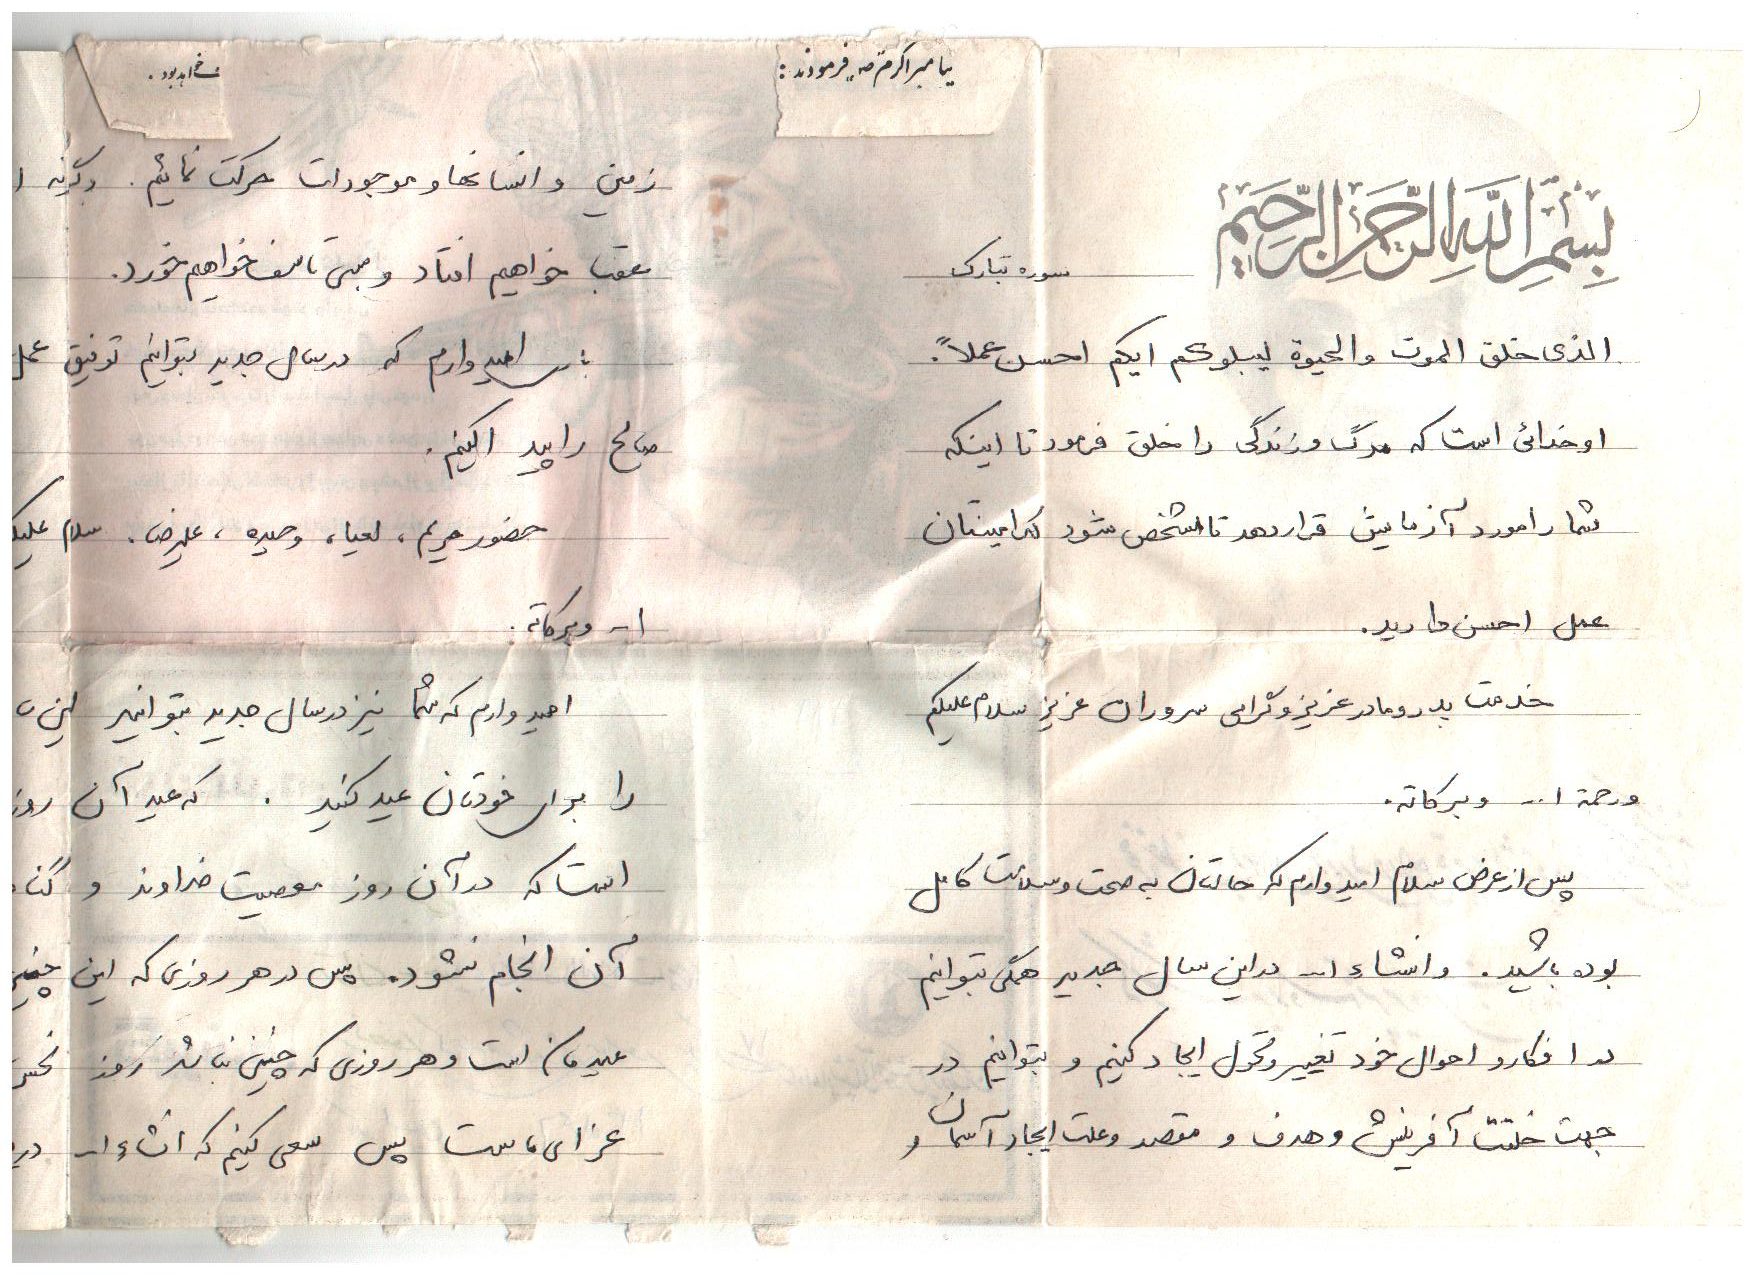 پیامبر اکرم ص فرمودند:
خواهد بود.
بِسْمِ اللَّهِ الرَّحْمَنِ الرَّحِيمِ
سوره تبارک
الذی خلق الموت والحیوة لیبلوکم ایکم احسن عملاً.
او خدائی است که مرگ و زندگی را خلق فرمود تا اینکه
شما را مورد آزمایش قرار دهد تا مشخص شود کدامیتان
عمل احسن دارید.
خدمت پدر و مادر عزیز و گرامی سروران عزیز سلام علیکم
ورحمة ا... وبرکاته.
پس از عرض سلام امیدوارم که حالتان به صحت و سلامت کامل
بوده باشید. وانشاء ا... در این سال جدید همگی بتوانیم
در افکار و احوال خود تغییر و تحول ایجاد کنیم و بتوانیم در
جهت خلقت آفرینش و هدف و مقصد و علت ایجاد آسمان و
زمین و انسانها و موجودات حرکت نمائیم. وگرنه ا
عقب خواهیم افتاد و بسی تاسف خواهیم خورد.
باری امیدوارم که در سال جدید بتوانیم توفیق عمل
صالح را پیدا کنیم.
حضور مریم، لعیا، وحیده، علیرضا. سلام علیک
ا... وبرکاته.
امیدوارم که شما نیز در سال جدید بتوانید این
را برای خودتان عید کنید. که عید آن روز
است که در آن روز معصیت خداوند و گناه
آن انجام نشود. پس در هر روزی که این چنین
عید مان است و هر روزی که چنین نباشد روز نحس
عزای ماست پس سعی کنیم که انشاء ا... در